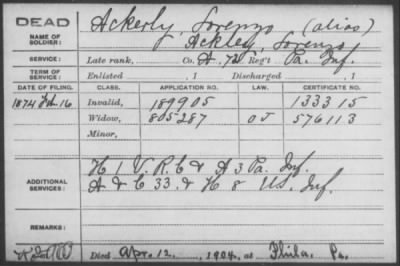 DEAD Ackerly, Lorenzo (alias)
NAME OF SOLDIER: Ackley, Lorenzo
SERVICE: Late rank, Co. A, 72 Reg't Pa. Inf.
TERM OF SERVICE: Enlisted , 1 Discharged , 1
DATE OF FILING. CLASS. APPLICATION NO. LAW. CERTIFICATE NO.
1874 Feb. 16 Invalid, 189905 133315
Widow, 805287 O J 576113
Minor,
ADDITIONAL SERVICES: H 1 V. R. C & A 3 Pa. Inf.
A & C 33. & H 8 U.S. Inf.
REMARKS:
Died Apr. 12, 1904, at Phila. Pa.